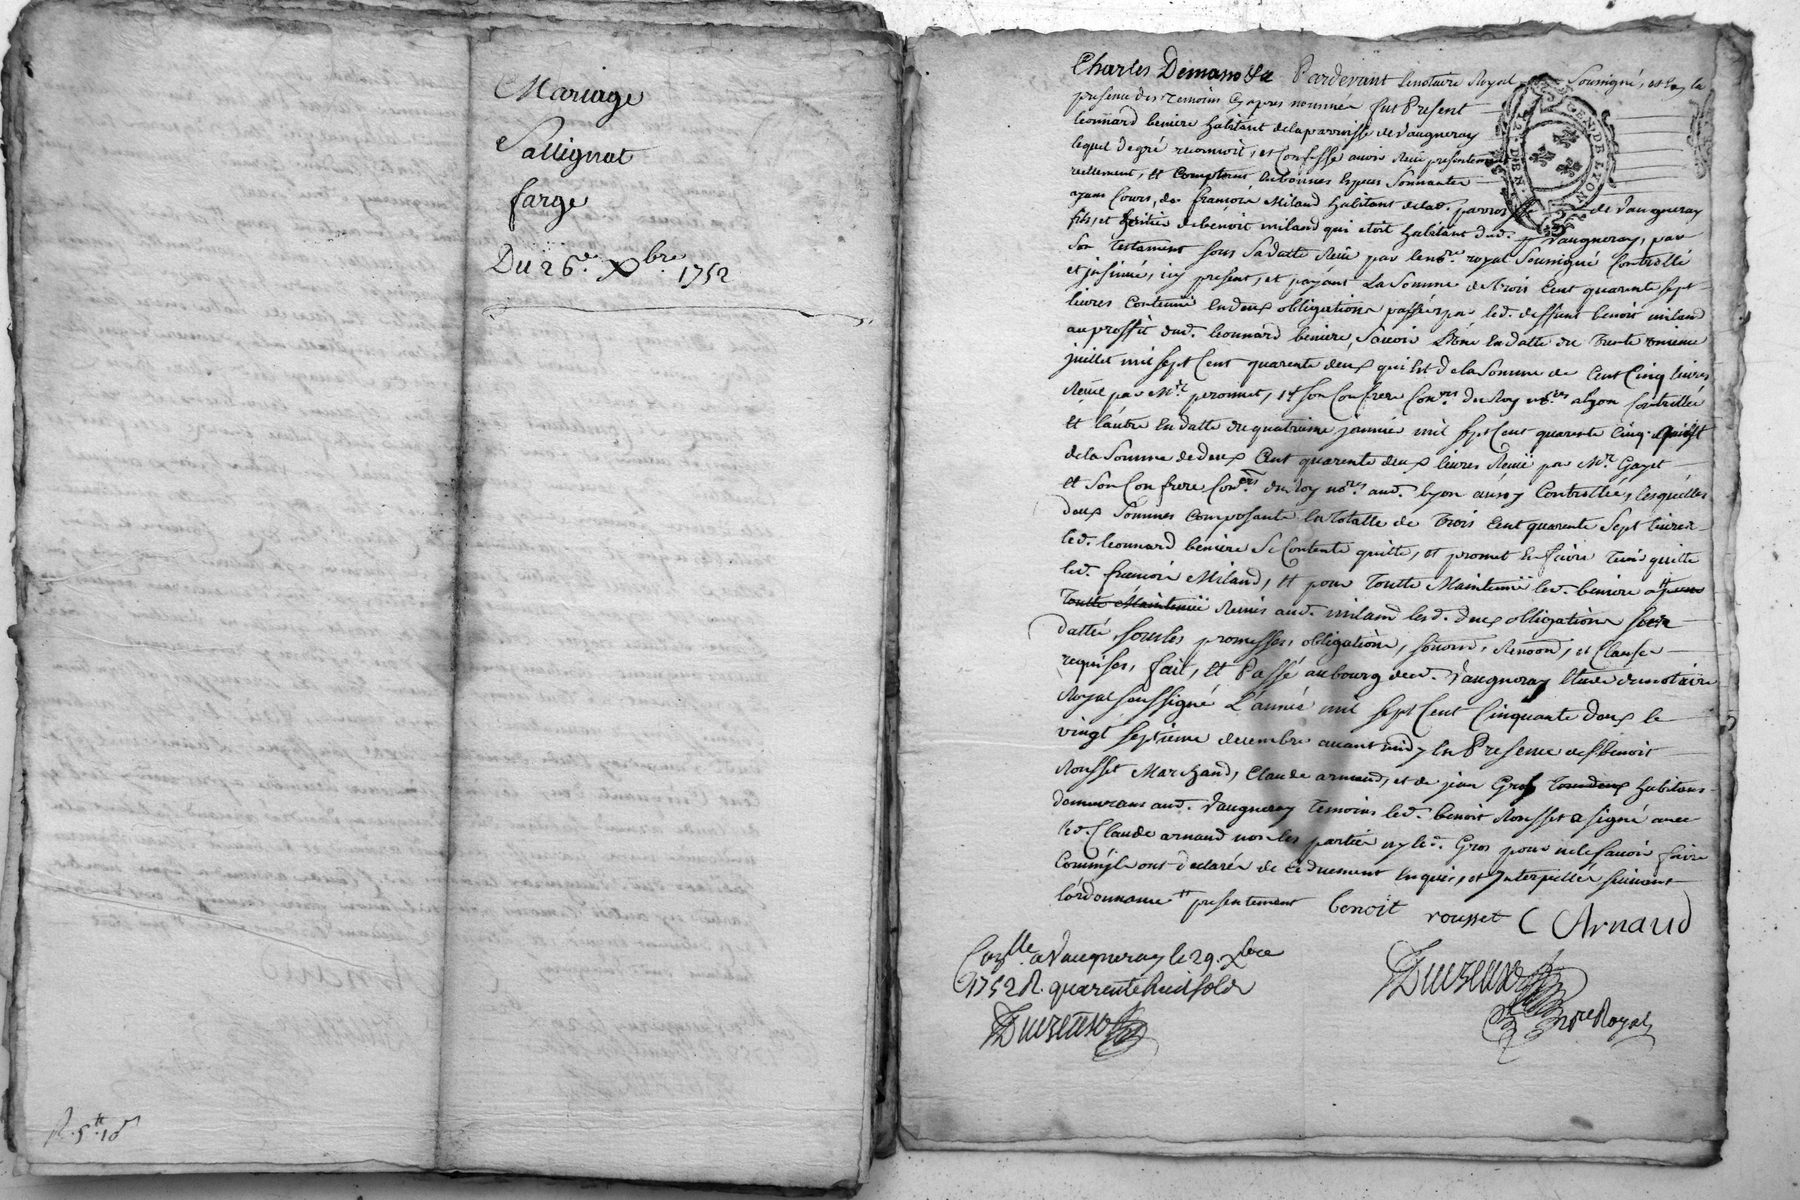 Mariage
Sallignat
farge
Du 26e Xbre 1752
R. 5tt 10s
Charles Pardevant le notaire Royal Soussigné, et en la
presence des temoins cy apres nommes fut Present
leonnard beniere habitant de la parroisse de Vaugneray
lequel de gré reconnoit, et Confesse avoir Receu presentement
reellement, et Comptant En bonnes Especes Sonnantes
ayant Cours, de françois Miland habitant de lad. parroisse de Vaugneray
fils, et heritier de benoit miland qui etoit habitant dud. Vaugneray, par
Son testament sous Sa datte Receu par le nore royal Soussigné Controllé
et insinué, icy present, et payant La Somme de trois Cent quarente sept
livres Contenuë En deux obligations passées par led. deffunt benoit miland
au proffit dud. leonnard beniere, Savoir L'une En datte du trente unieme
juillet mil sept Cent quarente deux qui Est de la Somme de Cent Cinq livres
Receüe par Mr peronnet, et son Confrere Conrs du Roy nores a lyon Controllée
Et l'autre En datte du quatrieme janvier mil sept Cent quarente Cinq qui est
de la Somme de deux Cent quarente deux livres Receuë par Mr Gayet
Et Son Confrere Coners du Roy nores aud. lyon aussy Controllée, lesquelles
deux Sommes Composante En totalle de trois Cent quarente Sept livres
led. leonnard beniere Se Contente quitte, et promet En faire tenir quitte
led. françois Miland, Et pour toutte Maintenuë led. beniere a
toutte Maintenuë Remis aud. miland lesd. deux obligations Sus
dattées, sous les promesses, obligations, soumis, Renon, et Clauses
requises, fait, Et Passé au bourg dud. Vaugneray Etude du notaire
Royal soussigné L'année mil sept Cent Cinquante deux le
vingt septieme decembre avant midy En Presence de Sr benoit
Rousset Marchand, Claude arnaud, et de jean Gros habitans
demeurans aud. Vaugneray temoins led. benoit Rousset a signé avec
led. Claude arnaud non les parties ny led. Gros pour ne le savoir faire
Comm'ils ont declarés de ce duement Enquis, et Interpellés suivant
l'ordonnance tt presentement benoit rousset C Arnaud
Conlle a Vaugneray le 29 Xbre
1752 R. quarente huit sols
nre Royal
GEN. DE LYON
12 DEN.